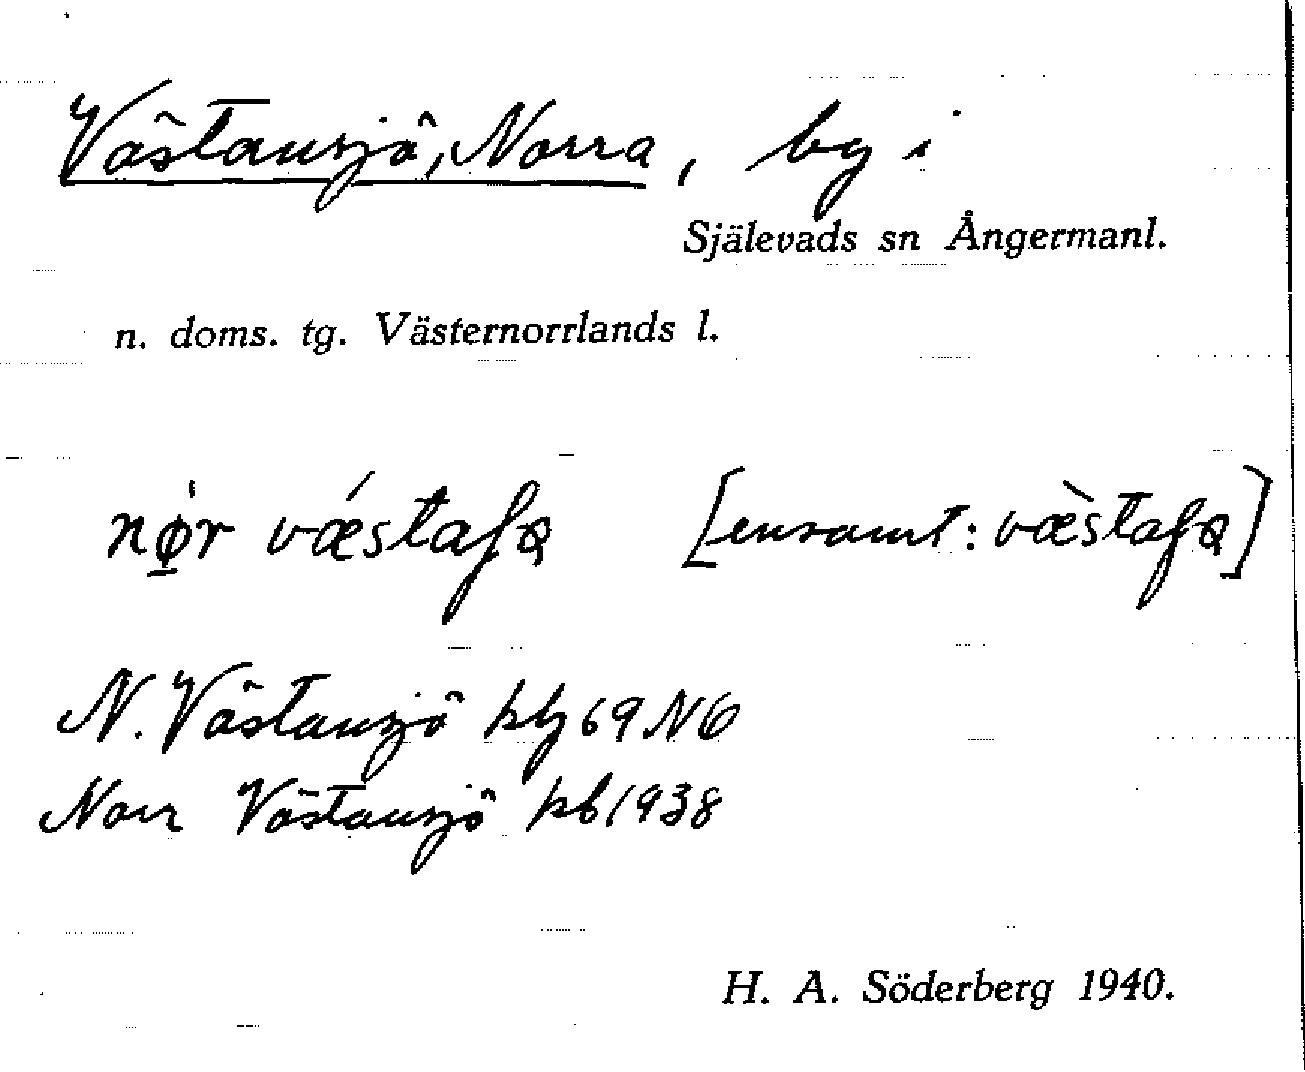 Västansjö, Norra, by i
Själevads sn Ångermanl.
n. doms. tg. Västernorrlands l.
nǿ̱r vǽstafꝹ [ensamt: væ̀stafꝹ]
N. Västansjö kbl 69 NO
Norr Västansjö kb 1938
H. A. Söderberg 1940.